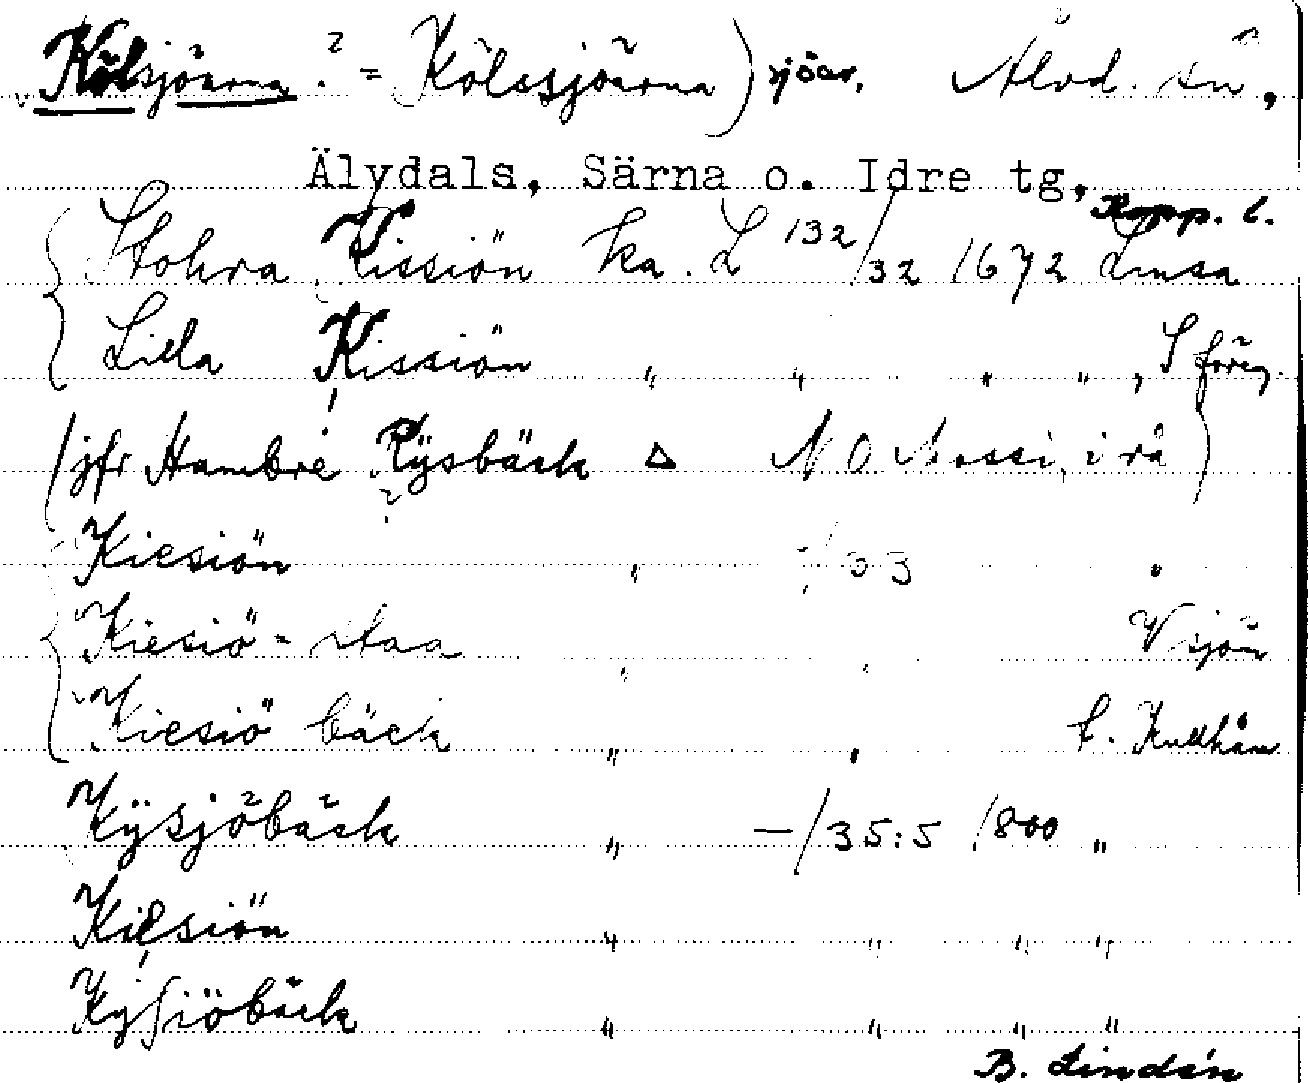 Kölsjöarna? = Kölssjöarna) sjöar, Älvd. sn,
Älvdals, Särna o. Idre tg, Kopp. l.
Stohra Kissiön ka. L 132/32 1672 Limsa
Lilla Kissiön " " " " , S föreg.
(jfr Hambre Kÿsbäck △ NO Nossi, i rå)
Kiesiön " -/33 "
Kiesiö-Aaa " " V sjön
Kiesiö bäck " " t.
Kÿsjöbäck " —/35:5 1800 "
Kiesiön " " " "
Kysiöbäck " " " "
B. Lindén